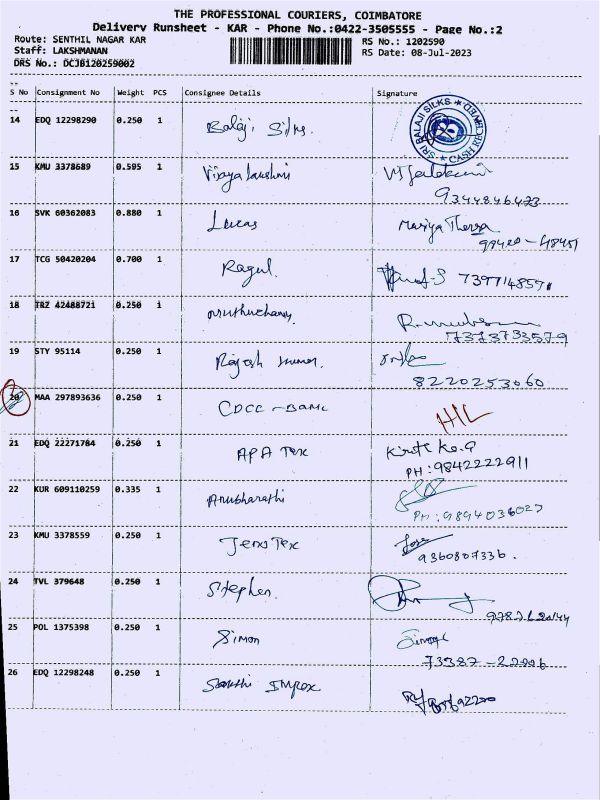 THE PROFESSIONAL COURIERS, COIMBATORE
Delivery Runsheet - KAR - Phone No.:0422-3505555 - Page No.:2
Route: SENTHIL NAGAR KAR
RS No.: 1202590
Staff: LAKSHMANAN
RS Date: 08-Jul-2023
DRS No.: DCJB120259002
S No Consignment No Weight PCS Consignee Details Signature
14 EDQ 12298290 0.250 1 Balaji Silks.
SRI BALAJI SILKS ★ CASH RECEIVED ★
15 KMU 3378689 0.595 1 Vijayalakshmi
9344846423
16 SVK 60362083 0.880 1 Lucas Mariya Theresa
17 TCG 50420204 0.700 1 Ragul.
18 TRZ 42488721 0.250 1
7373733579
19 STY 95114 0.250 1 Rajesh Kumar.
8220253060
20 MAA 297893636 0.250 1 CDCC - BANK
21 EDQ 22271784 0.250 1 APA Tex
PH:9842222911
22 KUR 609110259 0.335 1 Anubharathi
PH:9894036027
23 KMU 3378559 0.250 1 Jens Tex
9360807336.
24 TVL 379648 0.250 1 Stephen.
25 POL 1375398 0.250 1 Simon
26 EDQ 12298248 0.250 1 Sakthi Impex